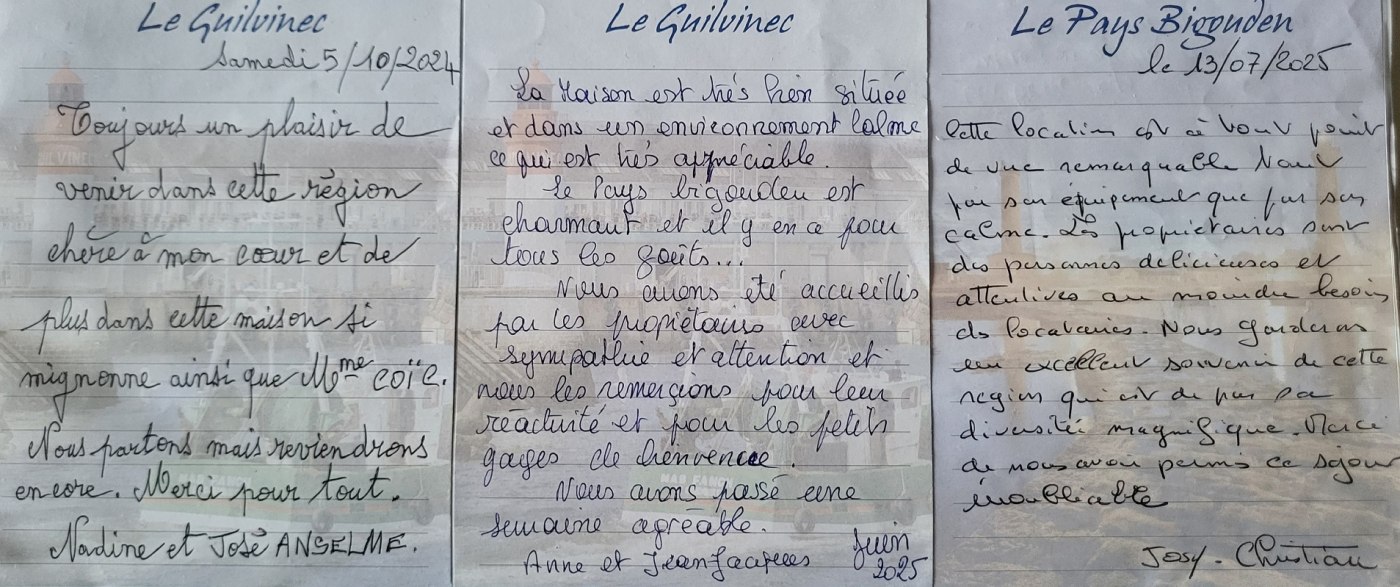 Le Guilvinec
Samedi 5/10/2024
Toujours un plaisir de
venir dans cette région
chère à mon cœur et de
plus dans cette maison si
mignonne ainsi que Mme COÏC.
Nous partons mais reviendrons
encore. Merci pour tout.
Nadine et José ANSELME.
Le Guilvinec
La Maison est très bien située
et dans un environnement calme
ce qui est très appréciable.
Le Pays bigouden est
charmant et il y en a pour
tous les goûts...
Nous avons été accueillis
par les propriétaires avec
sympathie et attention et
nous les remerçions pour leur
réactivité et pour les petits
gages de bienvenue.
Nous avons passé une
semaine agréable.
Anne et Jean Jacques
Juin
2025
Le Pays Bigouden
le 13/07/2025
Cette location est à tout point
de vue remarquable tant
par son équipement que par son
calme. Les propriétaires sont
des personnes delicieuses et
attentives au moindre besoin
des locataires. Nous garderons
un excellent souvenir de cette
region qui est de par sa
diversité magnifique. Merci
de nous avoir permis ce séjour
inoubliable
Josy - Christian